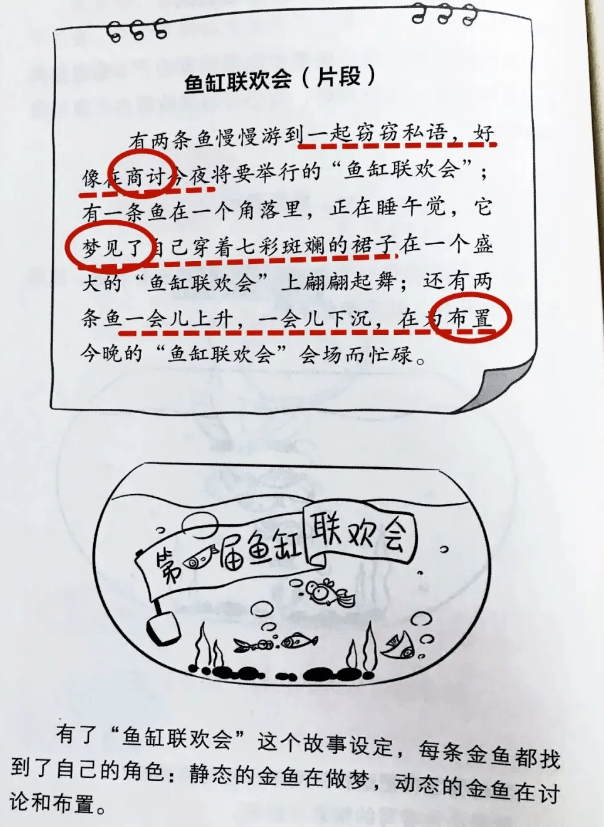 鱼缸联欢会（片段）
有两条鱼慢慢游到一起窃窃私语，好
像在商讨今夜将要举行的“鱼缸联欢会”；
有一条鱼在一个角落里，正在睡午觉，它
梦见了自己穿着七彩斑斓的裙子在一个盛
大的“鱼缸联欢会”上翩翩起舞；还有两
条鱼一会儿上升，一会儿下沉，在为布置
今晚的“鱼缸联欢会”会场而忙碌。
第届鱼缸联欢会
有了“鱼缸联欢会”这个故事设定，每条金鱼都找
到了自己的角色：静态的金鱼在做梦，动态的金鱼在讨
论和布置。